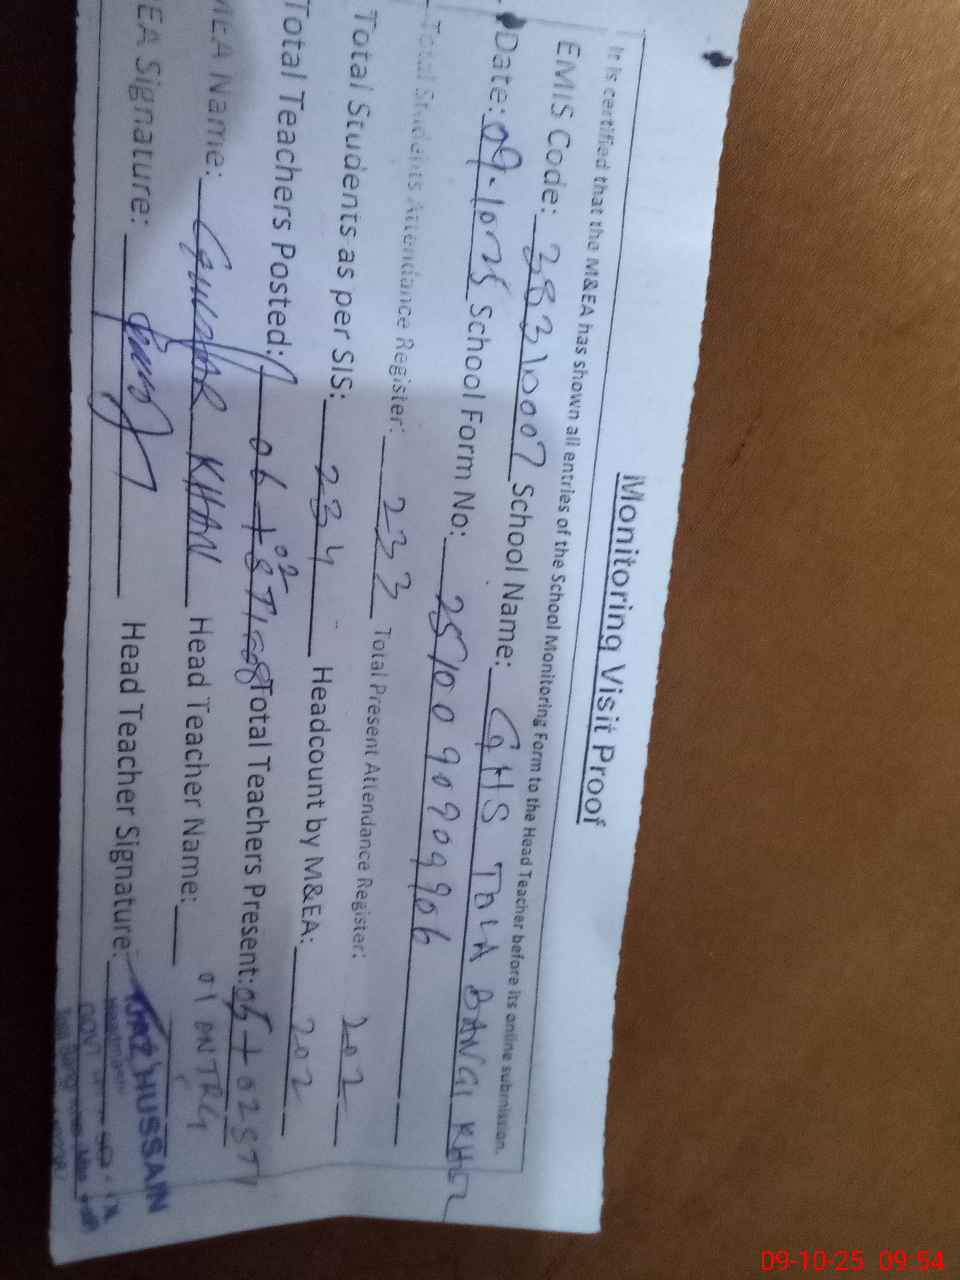 Monitoring Visit Proof
It is certified that the M&EA has shown all entries of the School Monitoring Form to the Head Teacher before its online submission.
EMIS Code: 38310007 School Name: GHS TOLA BANGI KHEL
Date: 09-10-25 School Form No: 2510090909906
Total Students Attendance Register: 233 Total Present Attendance Register: 202
Total Students as per SIS: 234 Headcount by M&EA: 202
Total Teachers Posted: 06 + 02 Total Teachers Present: 05 + 02
MEA Name: KHAN Head Teacher Name:
EA Signature: Head Teacher Signature:
HUSSAIN
09-10-25 09:54